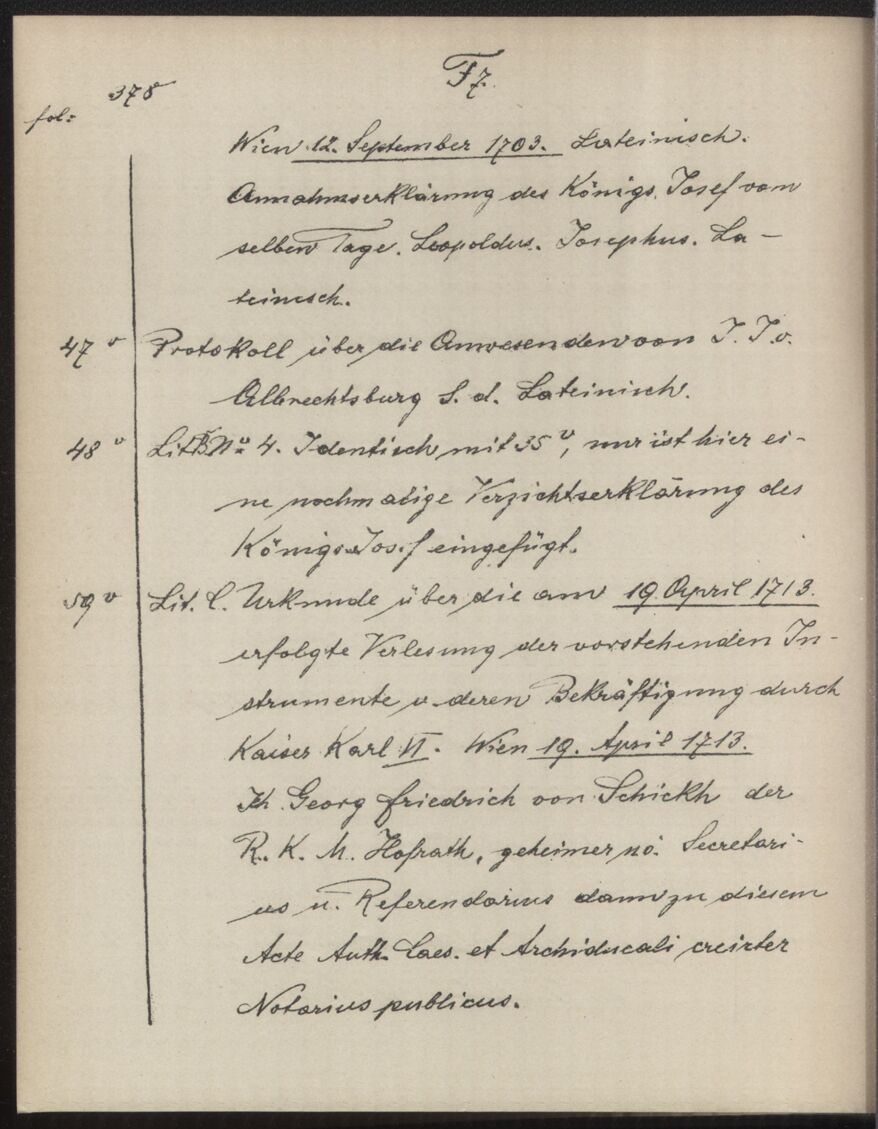 378
F7.
fol:
Wien 12. September 1703. Lateinisch.
Annahmserklärung des Königs Josef vom
selben Tage. Leopoldus. Josephus. La-
teinisch.
47 v Protokoll über die Anwesenden von J. J. v.
Albrechtsburg S. d. Lateinisch.
48 v Lit B No 4. Identisch mit 35 v, nur ist hier ei-
ne nochmalige Verzichtserklärung des
Königs Josef eingefügt.
59 v Lit. C. Urkunde über die am 19 April 1713.
erfolgte Verlesung der vorstehenden In-
strumente u. deren Bekräftigung durch
Kaiser Karl VI. Wien 19. April 1713.
Ich Georg Friedrich von Schickh der
R. K. M. Hofrath, geheimer nö. Secretari-
us u. Referendarius dann zu diesem
Acte Auth. Caes. et Archiducali creirter
Notarius publicus.